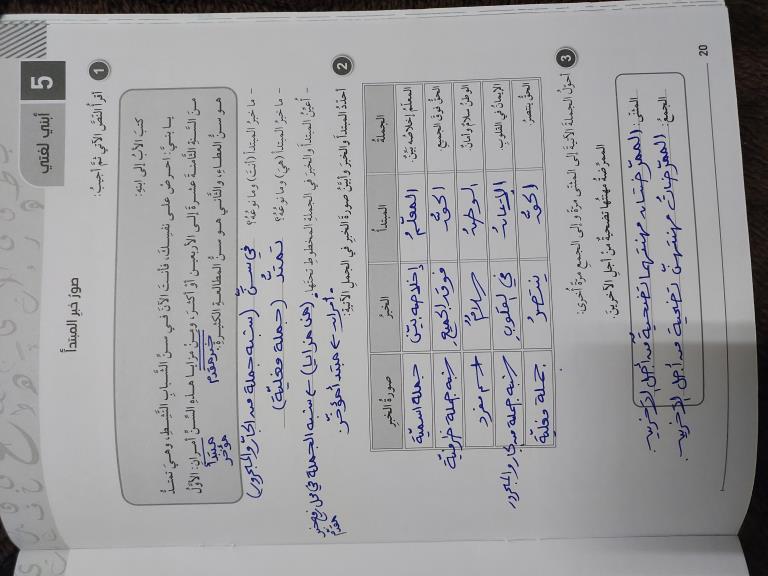 5
أبني لغتي
صور خبر المبتدأ
1 أقرأُ النّصّ الآتي ثمّ أُجيبُ:
كتبَ الأبُ إلى ابنِهِ:
يا بنيَّ: احرِصْ على نفسِكَ، فأنتَ الآنَ في سنِّ الشّبابِ النَّشِطِ، وهيَ تمتدُّ
منَ السّنةِ الثّامنةَ عشْرةَ إلى الأربعينَ أوْ أكثرَ، ومِنْ مزايا هذهِ السّنِّ أمرانِ: الأوّلُ
هوَ سنُّ العطاءِ، والثّاني هوَ سنُّ المطالعةِ الكثيرةِ.
خبر مقدم
مبتدأ مؤخر
- ما خبرُ المبتدأ (أنتَ) وما نوعُهُ؟ في سنّ (شبه جملة من الجار والمجرور)
- ما خبرُ المبتدأ (هيَ) وما نوعُهُ؟ تمتدُّ (جملة فعلية)
- أُعيّنُ المبتدأ والخبرَ في الجملةِ المخطوطِ تحتَها. (من مزايا) ← شبه الجملة في محل رفع خبر مقدم
أمران ← مبتدأ مؤخر.
2 أُحدّدُ المبتدأ والخبرَ وأُبيّنُ صورةَ الخبرِ في الجملِ الآتيةِ:
الجملةُ المبتدأ الخبرُ صورةُ الخبرِ
المعلّمُ إخلاصُهُ بيّنٌ. المعلّمُ إخلاصه بيّن جملة اسمية
الحقُّ فوقَ الجميعِ. الحقُّ فوق الجميع شبه جملة ظرفية
الوطنُ سلامٌ وأمانٌ. الوطنُ سلامٌ اسم مفرد
الإيمانُ في القلوبِ. الإيمانُ في القلوب شبه جملة من الجار والمجرور
الحقُّ ينتصرُ. الحقُّ ينتصرُ جملة فعلية
3 أُحوّلُ الجملةَ الآتيةَ إلى المثنّى مرّةً وإلى الجمعِ مرّةً أُخرى:
الممرّضةُ مهنتُها تضحيةٌ من أجلِ الآخرينَ.
المثنّى: الممرّضتان مهنتهما تضحية من أجل الآخرين.
الجمعُ: الممرّضاتُ مهنتهنّ تضحية من أجل الآخرين.
20